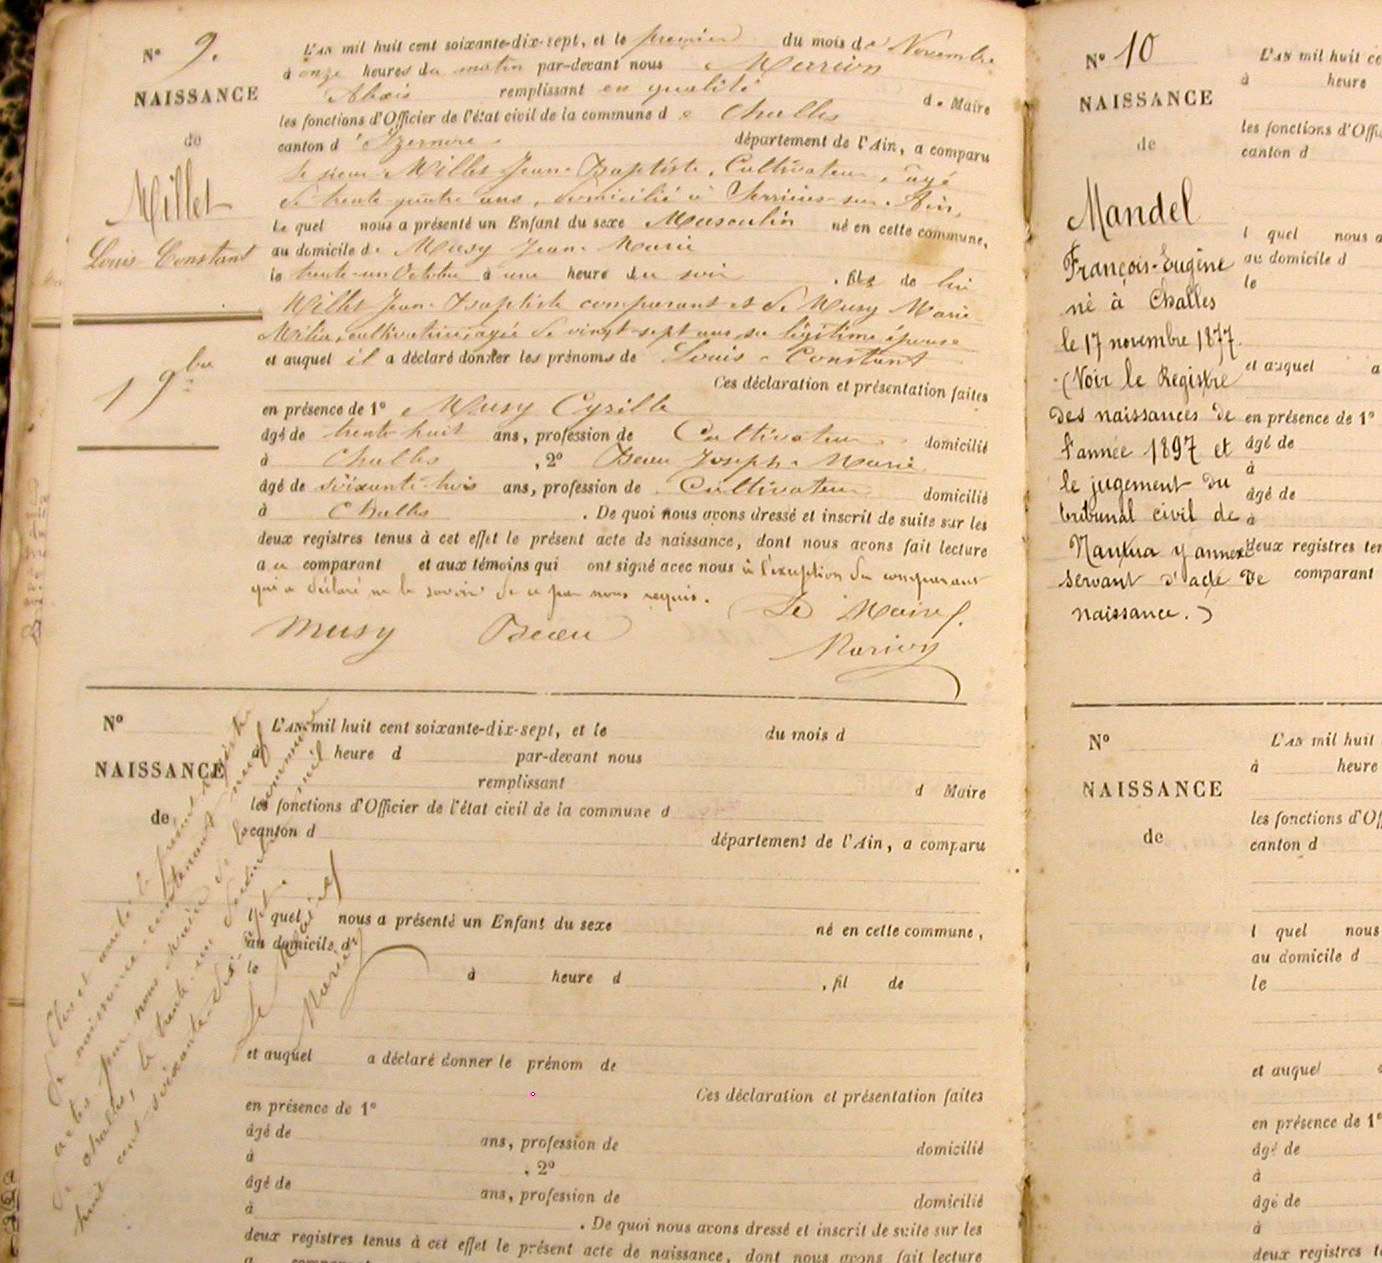 N° 9.
NAISSANCE
de
Millet
Louis Constant
19bre
L'AN mil huit cent soixante-dix-sept, et le premier du mois de Novembre
à onze heures du matin par-devant nous Marion
Alexis remplissant en qualité de Maire
les fonctions d'Officier de l'état civil de la commune de Challes
canton d'Izernore département de l'Ain, a comparu
Le sieur Millet Jean-Baptiste, Cultivateur, âgé
de trente-quatre ans, domicilié à Serrières-sur-Ain,
Le quel nous a présenté un Enfant du sexe Masculin né en cette commune,
au domicile de Musy Jean Marie
le trente-un Octobre à une heure du soir, fils de lui
Millet Jean-Baptiste comparant et de Musy Marie
cultivatrice, agée de vingt-sept ans sa légitime épouse
et auquel il a déclaré donner les prénoms de Louis-Constant
Ces déclaration et présentation faites
en présence de 1° Musy Cyrille
âgé de trente-huit ans, profession de Cultivateur domicilié
à Challes, 2° Joseph-Marie
âgé de soixante-trois ans, profession de Cultivateur domicilié
à Challes. De quoi nous avons dressé et inscrit de suite sur les
deux registres tenus à cet effet le présent acte de naissance, dont nous avons fait lecture
au comparant et aux témoins qui ont signé avec nous à l'exception du comparant
qui a déclaré ne le savoir de ce par nous requis.
Le Maire
Musy
Marion
N°
NAISSANCE
de
L'AN mil huit cent soixante-dix-sept, et le du mois d
à heure d par-devant nous
remplissant d Maire
les fonctions d'Officier de l'état civil de la commune d
canton d département de l'Ain, a comparu
l quel nous a présenté un Enfant du sexe né en cette commune,
au domicile d
le à heure d , fil de
et auquel a déclaré donner le prénom de
Ces déclaration et présentation faites
en présence de 1°
âgé de ans, profession de domicilié
à , 2°
âgé de ans, profession de domicilié
à . De quoi nous avons dressé et inscrit de suite sur les
deux registres tenus à cet effet le présent acte de naissance, dont nous avons fait lecture
Clos et arrêté le présent registre
de naissance contenant neuf
actes par nous Maire de la commune
de Challes, le trente-un Décembre mil
huit cent soixante-dix-sept.
Le Maire
Marion
N° 10
NAISSANCE
de
Mandel
François-Eugène
né à Challes
le 17 novembre 1877.
(Voir le Registre
des naissances de
l'année 1897 et
le jugement du
tribunal civil de
Nantua y annexé
servant d'acte de
naissance.)
L'AN mil huit ce
à heure
les fonctions d'Offi
canton d
l quel nous a
au domicile d
le
et auquel a
en présence de 1°
âgé de
à
âgé de
à
deux registres ten
comparant
N°
NAISSANCE
de
L'AN mil huit
à heure
les fonctions d'Of
canton d
l quel nous
au domicile d
le
et auquel
en présence de 1°
âgé de
à
âgé de
à
deux registres t